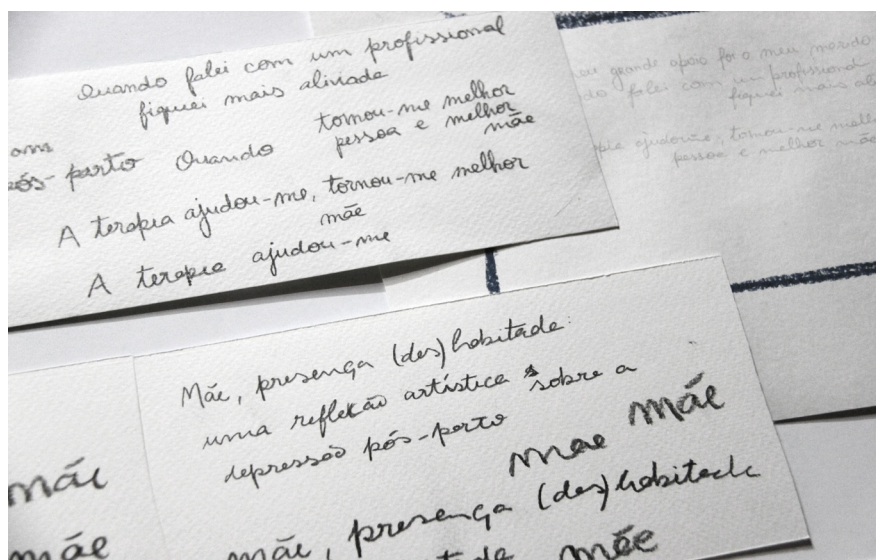 Quando falei com um profissional
fiquei mais aliviada
pós-parto Quando tornou-me melhor
pessoa e melhor
mãe
A terapia ajudou-me, tornou-me melhor
mãe
A terapia ajudou-me
grande apoio foi o meu marido
falei com um profissional
fiquei mais
ajudou-me, tornou-me
pessoa e melhor mãe
Mãe, presença (des)habitada:
uma reflexão artística sobre a
depressão pós-parto
mãe mãe
mãe, presença (des)habitada
mãe
mãe
mãe